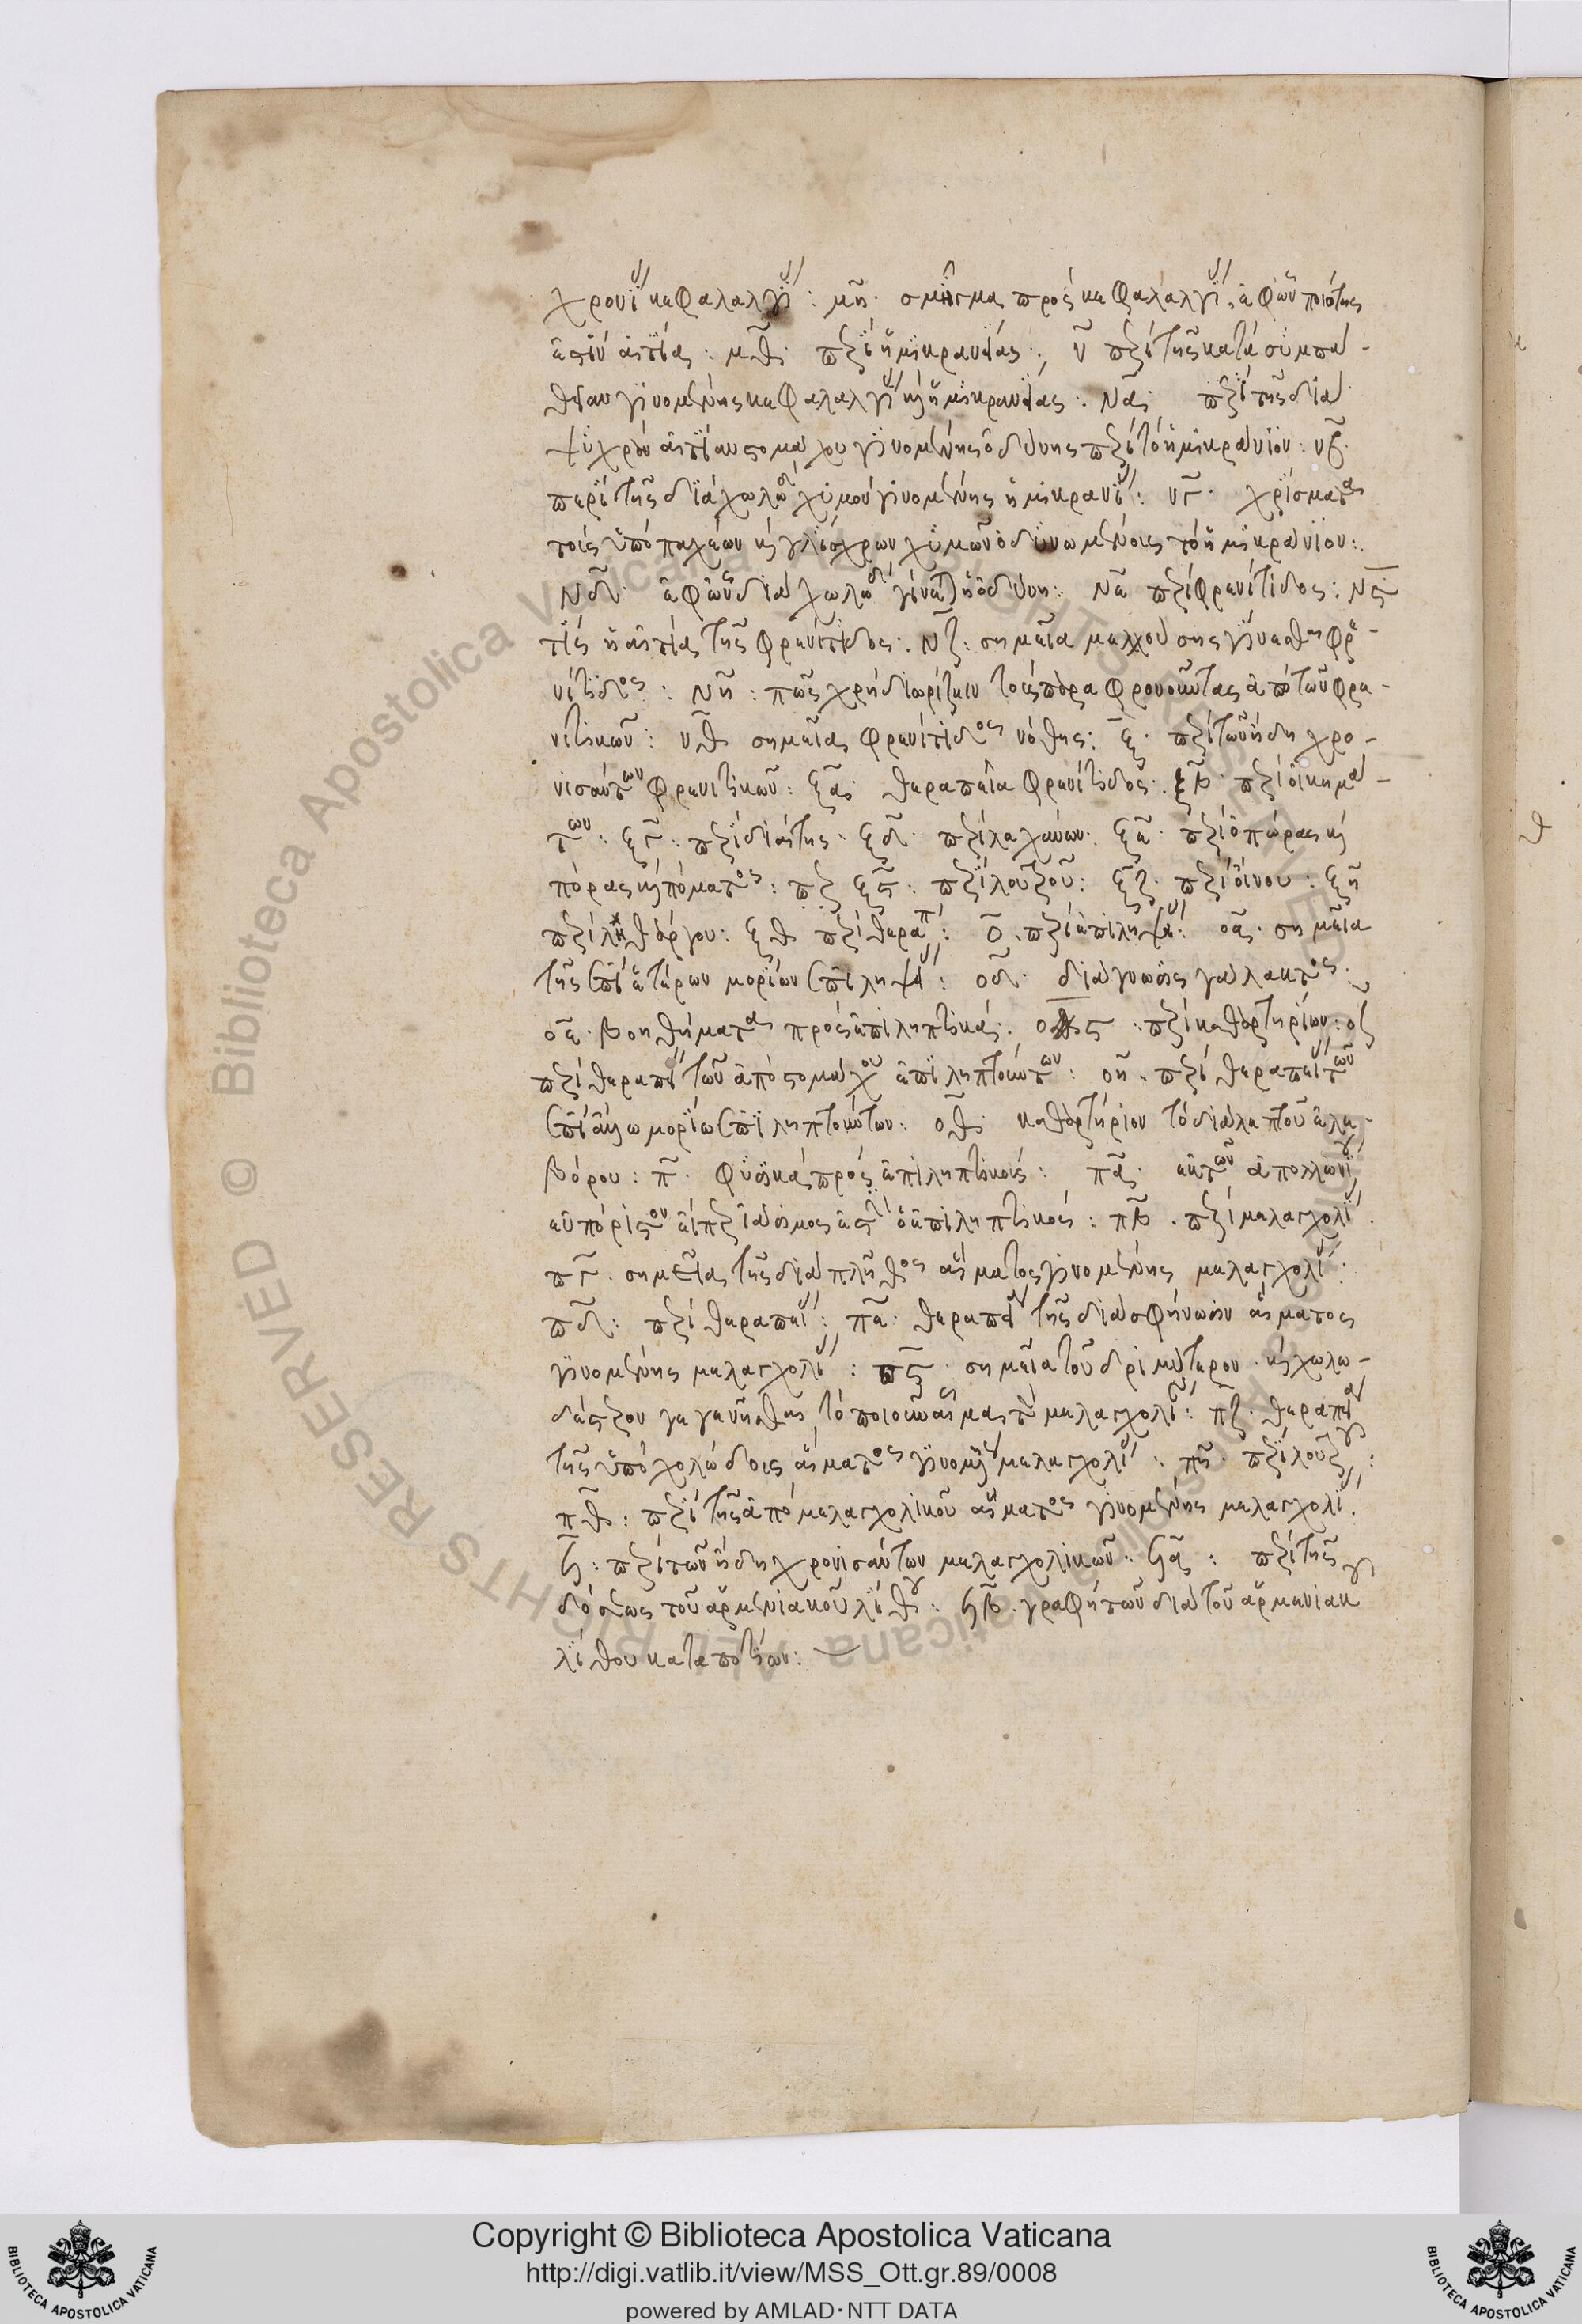 χρονί κεφαλαλγί : μη· σμήγμα πρὸς κεφαλαλγί, ἐφ' ὧν ποιότης
ἐστὶν αἰτία: μθ· περὶ ἡμικρανίας: ν περὶ τῆς κατὰ συμπά-
θειαν γινομένης κεφαλαλγί καὶ ἡμικρανίας: να· περὶ τῆς διὰ
ψυχρὰν αἰτίαν στομάχου γινομένης ὀδύνης περὶ τὸ ἡμικράνιον: νβ·
περὶ τῆς διὰ χολώδ χυμὸν γινομένης ἡμικρανί: νγ· χρίσματα
τοῖς ὑπὸ παχέων καὶ γλίσχρων χυμῶν ὀδυνωμένοις τὸ ἡμικράνιον:
νδ· ἐφ' ὧν διὰ χολώδ γίνεται ἡ ὀδύνη: νε περὶ φρενίτιδος: νς
τίς ἡ αἰτία τῆς φρενίτιδος: νζ: σημεῖα μελλούσης γίνεσθαι φρε-
νίτιδος: νη: πῶς χρὴ διορίζειν τοὺς παραφρονοῦντας ἀπὸ τῶν φρε-
νιτικῶν: νθ σημεῖα φρενίτιδος νόθης: ξ· περὶ τῶν ἤδη χρο-
νισάντων φρενιτικῶν: ξα· θεραπεία φρενίτιδος· ξβ· περὶ οἰκημά-
των: ξγ· περὶ διαίτης· ξδ· περὶ λαχάνων· ξε· περὶ ὀπώρας καὶ
πόρας καὶ πόματος: περ ξς: περὶ λουτροῦ: ξζ· περὶ οἴνου: ξη
περὶ ληθάργου: ξθ περὶ θεραπ: ο· περὶ ἐπιληψί: οα· σημεῖα
τῆς ἐπὶ ἑτέρων μορίων ἐπιληψί: οδ· διάγνωσις γάλακτος:
οε· βοηθήματα πρὸς ἐπιληπτικούς· ος: περὶ καθαρτηρίων: οζ
περὶ θεραπεί τῶν ἀπὸ στομάχου ἐπιληπτικῶν: οη· περὶ θεραπεί τῶν
ἐπὶ ἄλλω μορίω ἐπιληπτικῶν: οθ· καθαρτήριον τὸ διὰ λεπτοῦ ἐλλε-
βόρου: π· φυσικὰ πρὸς ἐπιληπτικούς: πα· ἐκ τῶν ἀπολλωνί
εὐπόριστον εἰ περιάσιμος ἐστὶ ὁ ἐπιληπτικός: πβ· περὶ μελαγχολί·
πγ· σημεῖα τῆς διὰ πλῆθος αἵματος γινομένης μελαγχολί:
πδ: περὶ θεραπεί: πε· θεραπεί τῆς διὰ σφήνωσιν αἵματος
γινομένης μελαγχολί: πς· σημεῖα τοῦ δριμύτερον· καὶ χολω-
δέστερον γεγενῆσθαι τὸ ποιοῦν αἷμα τὴν μελαγχολί: πζ· θεραπεί
τῆς ὑπὸ χολώδους αἵματος γινομέ μελαγχολί: πη· περὶ λουτροῦ:
πθ: περὶ τῆς ἀπὸ μελαγχολικοῦ αἵματος γινομένης μελαγχολί·
ϟ: περὶ τῶν ἤδη χρονισάντων μελαγχολικῶν: ϟα: περὶ τῆς
δόσεως τοῦ ἀρμενιακοῦ λίθου: ϟβ· γραφὴ τῶν διὰ τοῦ ἀρμενιακοῦ
λίθου καταποτίων:
Copyright © Biblioteca Apostolica Vaticana
http://digi.vatlib.it/view/MSS_Ott.gr.89/0008
powered by AMLAD·NTT DATA